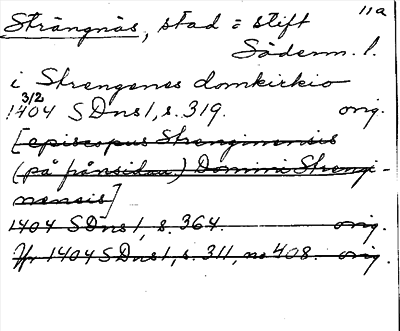 11a
Strängnäs, stad o stift
Söderm. l.
i Strengenes domkirkio
3/2
1404 SDns 1, s. 319. orig.
[episcopus Strenginensis
(på frånsidan) Domini Strengi-
nensis]
1404 SDns 1, s. 364. orig.
1404 SDns 1, s. 311, no 408. orig.